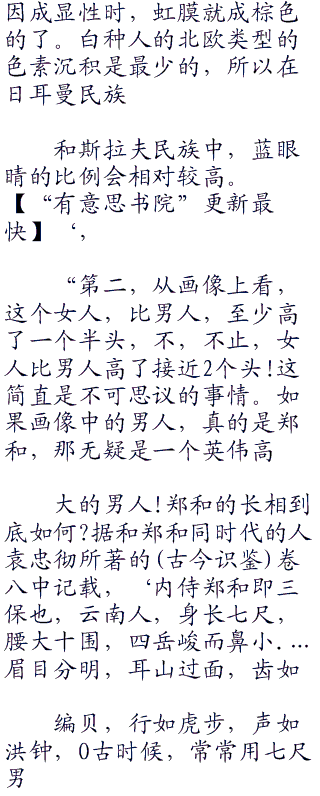 因成显性时，虹膜就成棕色
的了。白种人的北欧类型的
色素沉积是最少的，所以在
日耳曼民族
和斯拉夫民族中，蓝眼
睛的比例会相对较高。
【“有意思书院”更新最
快】‘，
“第二，从画像上看，
这个女人，比男人，至少高
了一个半头，不，不止，女
人比男人高了接近2个头!这
简直是不可思议的事情。如
果画像中的男人，真的是郑
和，那无疑是一个英伟高
大的男人!郑和的长相到
底如何?据和郑和同时代的人
袁忠彻所著的(古今识鉴)卷
八中记载，‘内侍郑和即三
保也，云南人，身长七尺，
腰大十围，四岳峻而鼻小....
眉目分明，耳山过面，齿如
编贝，行如虎步，声如
洪钟，0古时候，常常用七尺
男